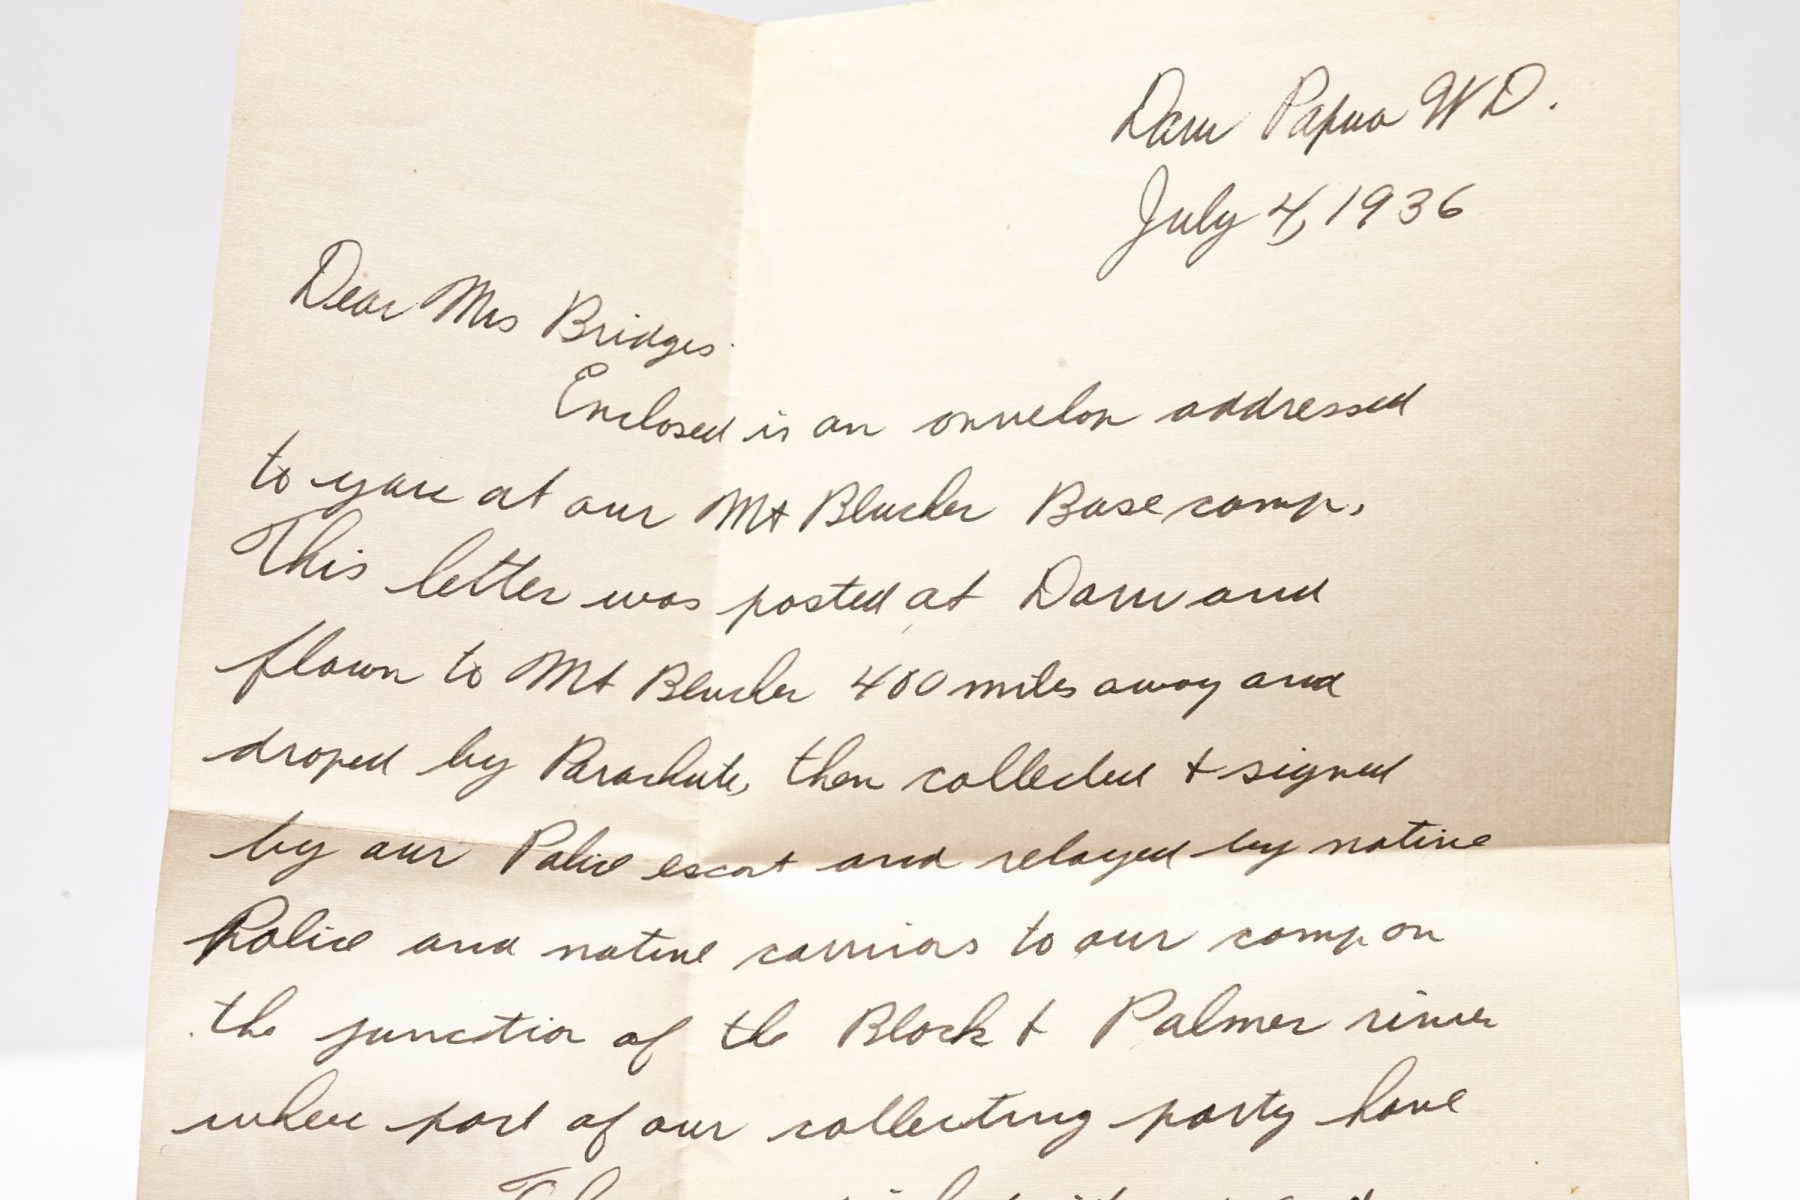 Daru Papua W D.
July 4, 1936
Dear Mrs Bridges.
Enclosed is an onvelon addressed
to you at our Mt Blucher Base camp.
This letter was posted at Daru and
flown to Mt Blucher 400 miles away and
droped by Parachute, then collected + signed
by our Police escort and relayed by native
Police and native carriors to our camp on
the junction of the Black + Palmer river
where part of our collecting party have